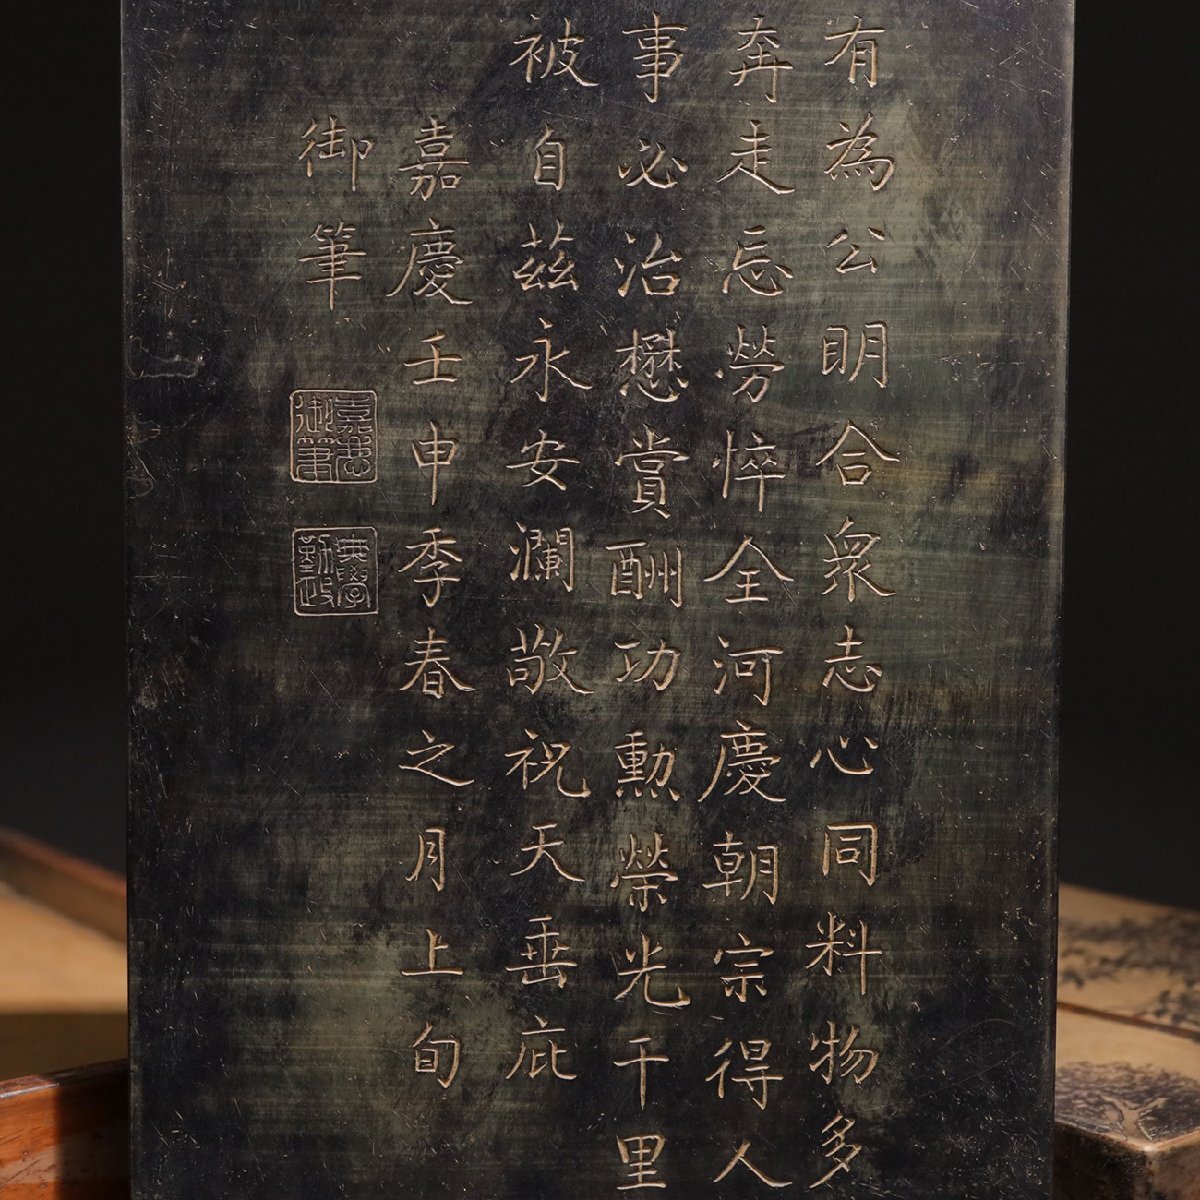 有為公明合衆志心同料物多
奔走忘勞悴全河慶朝宗得人
事必治懋賞酬功勳榮光千里
被自茲永安瀾敬祝天垂庇
嘉慶壬申季春之月上旬
御筆
嘉慶御筆
典學勤政